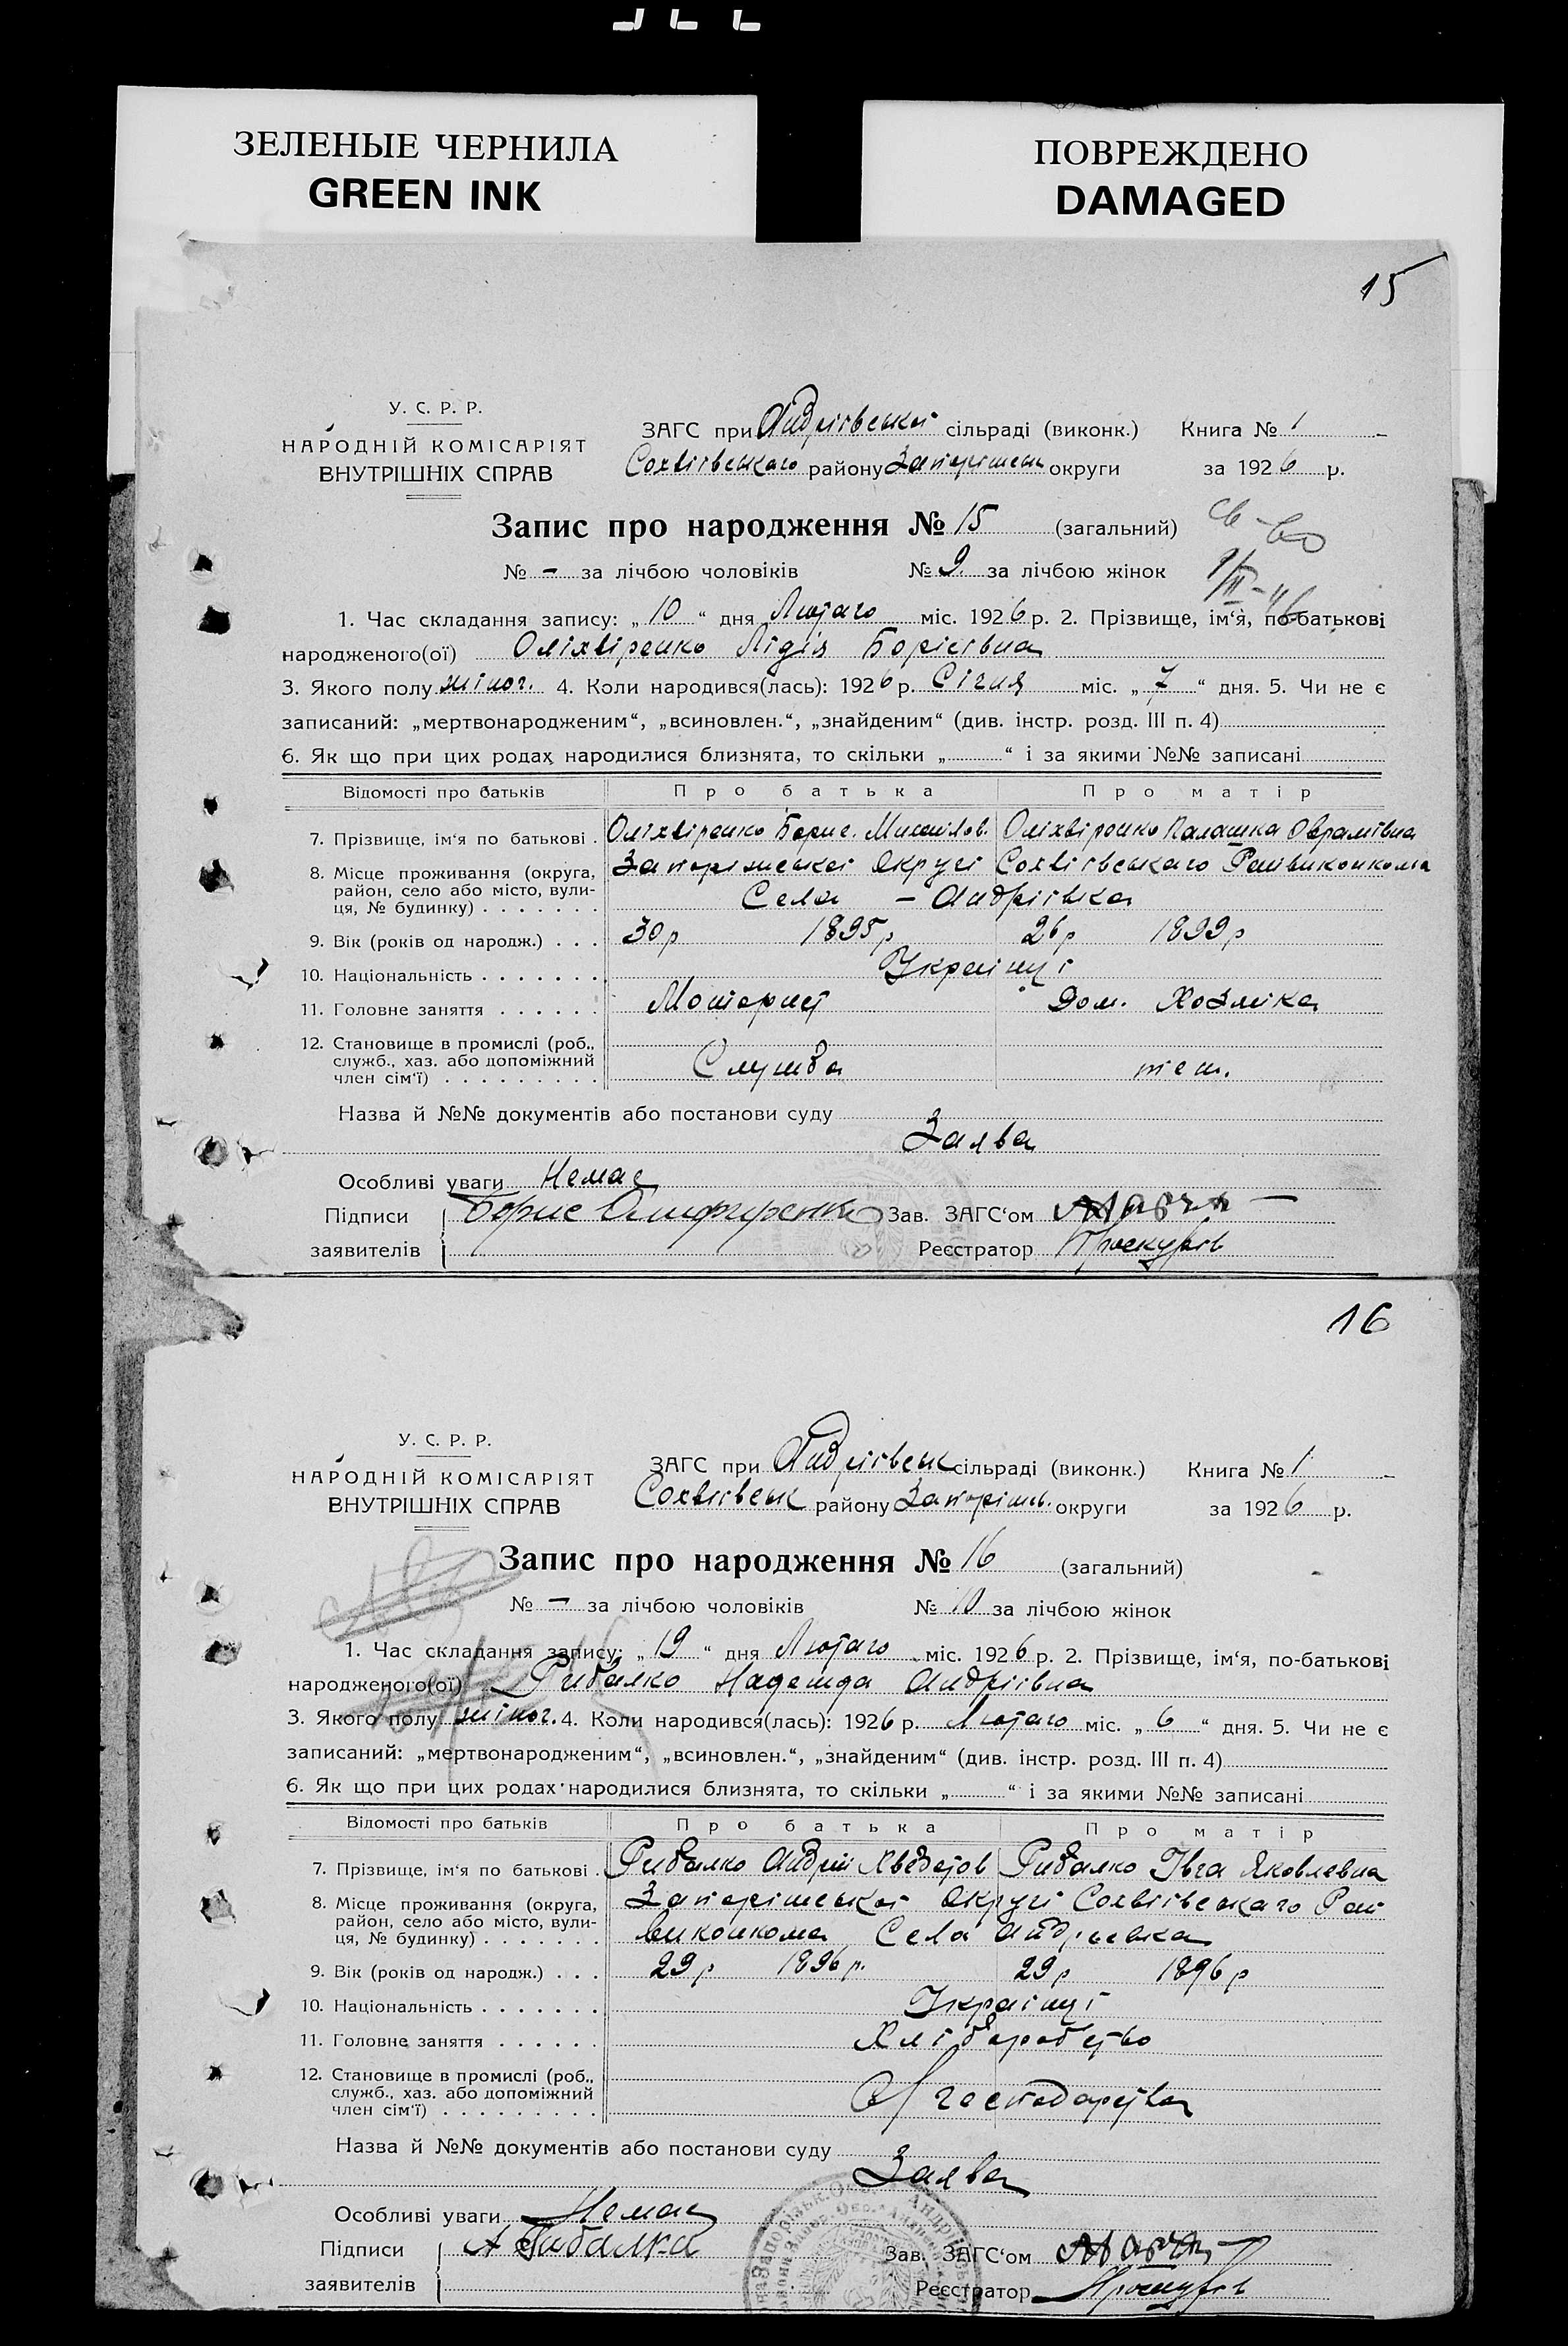 ЗЕЛЕНЫЕ ЧЕРНИЛА
GREEN INK
ПОВРЕЖДЕНО
DAMAGED
15
У. С. Р. Р.
НАРОДНІЙ КОМІСАРІЯТ
ВНУТРІШНІХ СПРАВ
ЗАГС при Андріївської сільраді (виконк.) Книга № 1
Сохвіївського району Запоріжськ округи за 1926 р.
Запис про народження № 15 (загальний)
№ – за лічбою чоловіків № 9. за лічбою жінок
1. Час складання запису: „ 10 “ дня Лютаго міс. 1926 р. 2. Прізвище, ім‘я, по-батькові
народженого(ої) Оліхвіренко Лідія Борісівна
3. Якого полу жіноч. 4. Коли народився(лась): 1926 р. Січня міс. „ 7 “ дня. 5. Чи не є
записаний: „мертвонародженим“, „всиновлен.“, „знайденим“ (див. інстр. розд. III п. 4)
6. Як що при цих родах народилися близнята, то скільки „ “ і за якими №№ записані
Відомості про батьків Про батька Про матір
7. Прізвище, ім‘я по батькові . Оліхвіренко Борис. Михайлов. Оліхвіренко Палашка Оврамівна
8. Місце проживання (округа, Запоріжської Округі Сохвіївського Райвиконкома
район, село або місто, вули-
ця, № будинку) . . . . . . . Села – Андріївка
9. Вік (років од народж.) . . . 30 р 1895 р 26 р 1899 р
10. Національність . . . . . . . Українці
11. Головне заняття . . . . . . Моторист Дом. Хозяйка
12. Становище в промислі (роб.,
служб., хаз. або допоміжний
член сім‘ї) . . . . . . . . . Служба теж.
Назва й №№ документів або постанови суду
Заява
Особливі уваги Немає
Підписи Борис Олифиренко Зав. ЗАГС‘ом
заявителів Реєстратор Проскурів
16
У. С. Р. Р.
НАРОДНІЙ КОМІСАРІЯТ
ВНУТРІШНІХ СПРАВ
ЗАГС при Андріївськ сільраді (виконк.) Книга № 1
Сохвіївськ району Запоріжь. округи за 1926 р.
Запис про народження № 16 (загальний)
№ – за лічбою чоловіків № 10 за лічбою жінок
1. Час складання запису: „ 19 “ дня Лютаго міс. 1926 р. 2. Прізвище, ім‘я, по-батькові
народженого(ої) Рибалко Надежда Андріївна
3. Якого полу жіноч. 4. Коли народився(лась): 1926 р. Лютаго міс. „ 6 “ дня. 5. Чи не є
записаний: „мертвонародженим“, „всиновлен.“, „знайденим“ (див. інстр. розд. III п. 4)
6. Як що при цих родах народилися близнята, то скільки „ “ і за якими №№ записані
Відомості про батьків Про батька Про матір
7. Прізвище, ім‘я по батькові . Рибалко Андрій Хведотов Рибалко Івга Яковлевна
8. Місце проживання (округа, Запоріжської Округі Сохвіївського Рай
район, село або місто, вули-
ця, № будинку) . . . . . . . виконкома Села Андрієвка
9. Вік (років од народж.) . . . 29 р 1896 р. 29 р 1896 р
10. Національність . . . . . . . Українці
11. Головне заняття . . . . . . Хліборобство
12. Становище в промислі (роб.,
служб., хаз. або допоміжний
член сім‘ї) . . . . . . . . . господарства
Назва й №№ документів або постанови суду
Заява
Особливі уваги Немає
Підписи А Рибалка Зав. ЗАГС‘ом
заявителів Реєстратор Проскурів